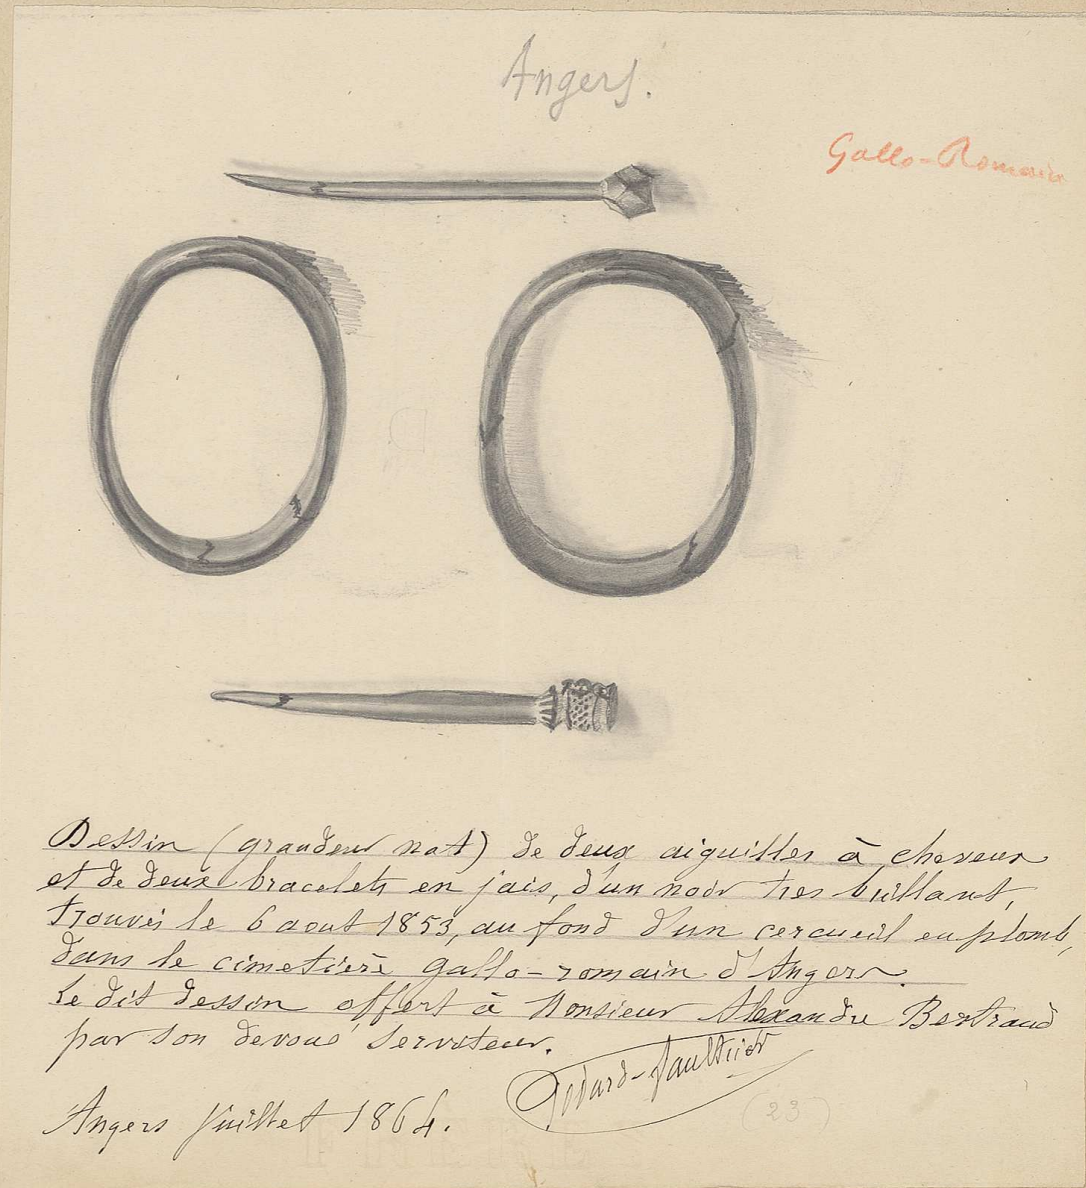 Angers.
Gallo-Romain
Dessin (grandeur nat) de deux aiguilles à cheveux
et de deux bracelets en jais, d'un noir tres brillant,
trouvés le 6 aout 1853, au fond d'un cercueil en plomb,
dans le cimetière gallo-romain d'Angers.
Le dit dessin offert à Monsieur Alexandre Bertrand
par son devoué serviteur.
Godard-Faultrier
Angers Juillet 1864.
(23)